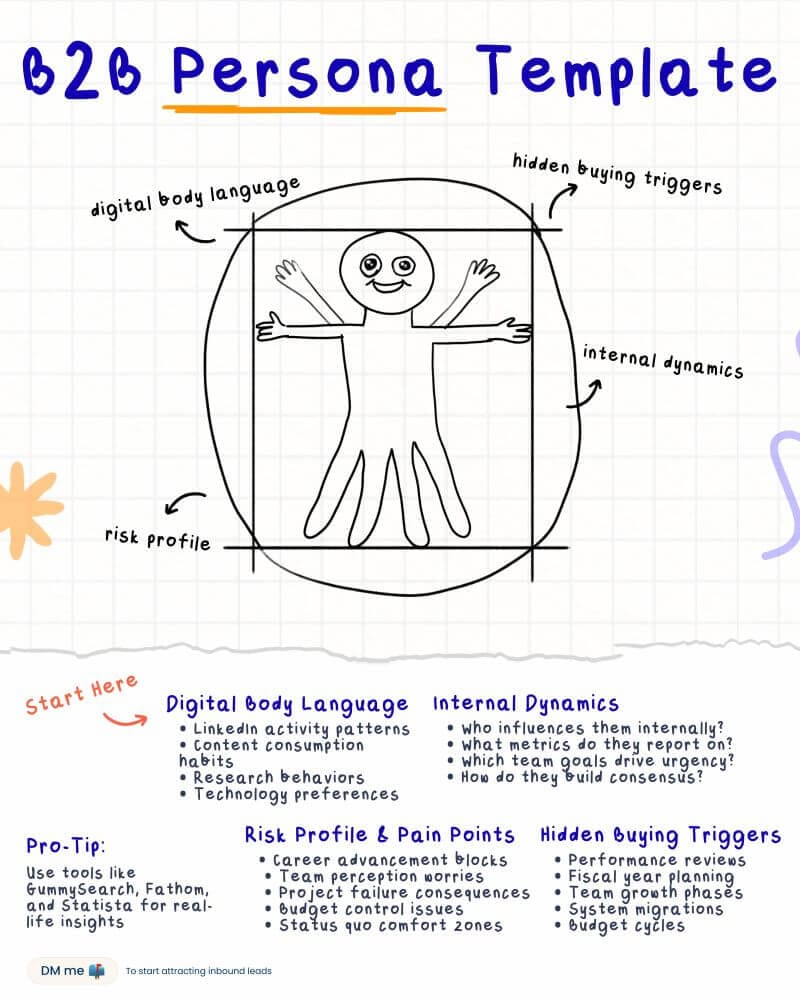 B2B Persona Template
digital body language
hidden buying triggers
internal dynamics
risk profile
Start Here
Digital Body Language
• LinkedIn activity patterns
• Content consumption
habits
• Research behaviors
• Technology preferences
Internal Dynamics
• Who influences them internally?
• What metrics do they report on?
• Which team goals drive urgency?
• How do they build consensus?
Pro-Tip:
Use tools like
GummySearch, Fathom,
and Statista for real-
life insights
Risk Profile & Pain Points
• Career advancement blocks
• Team perception worries
• Project failure consequences
• Budget control issues
• Status quo comfort zones
Hidden Buying Triggers
• Performance reviews
• Fiscal year planning
• Team growth phases
• System migrations
• Budget cycles
DM me 📫 To start attracting inbound leads